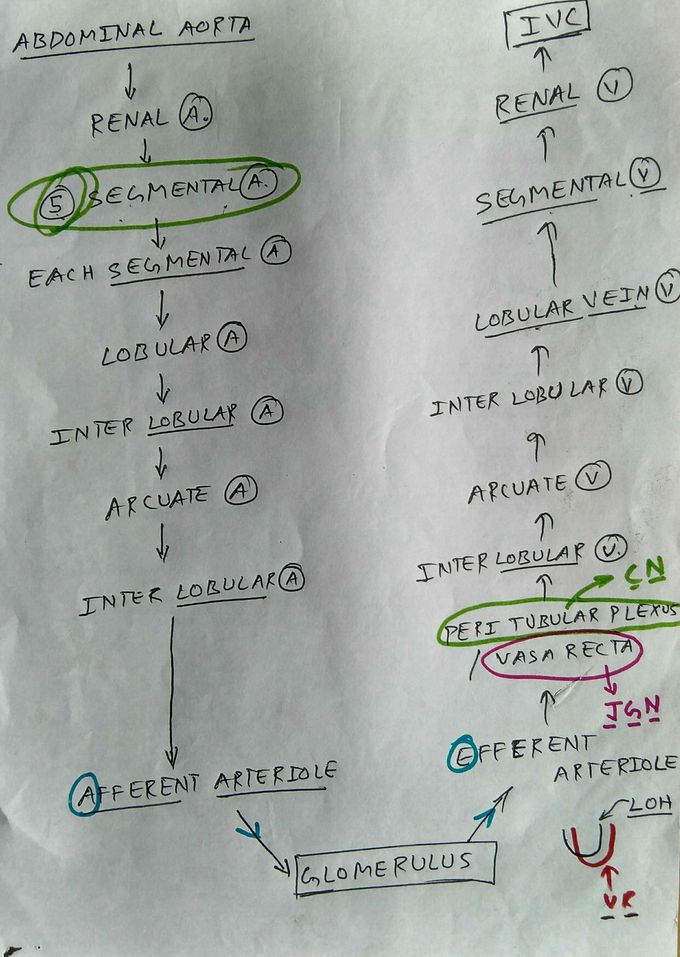 ABDOMINAL AORTA
RENAL A.
5 SEGMENTAL A.
EACH SEGMENTAL A
LOBULAR A
INTER LOBULAR A
ARCUATE A
INTER LOBULAR A
AFFERENT ARTERIOLE
GLOMERULUS
EFFERENT
ARTERIOLE
VASA RECTA
PERI TUBULAR PLEXUS
INTER LOBULAR V.
ARCUATE V
INTER LOBULAR V
LOBULAR VEIN V
SEGMENTAL V
RENAL V
IVC
CN
JGN
LOH
VR